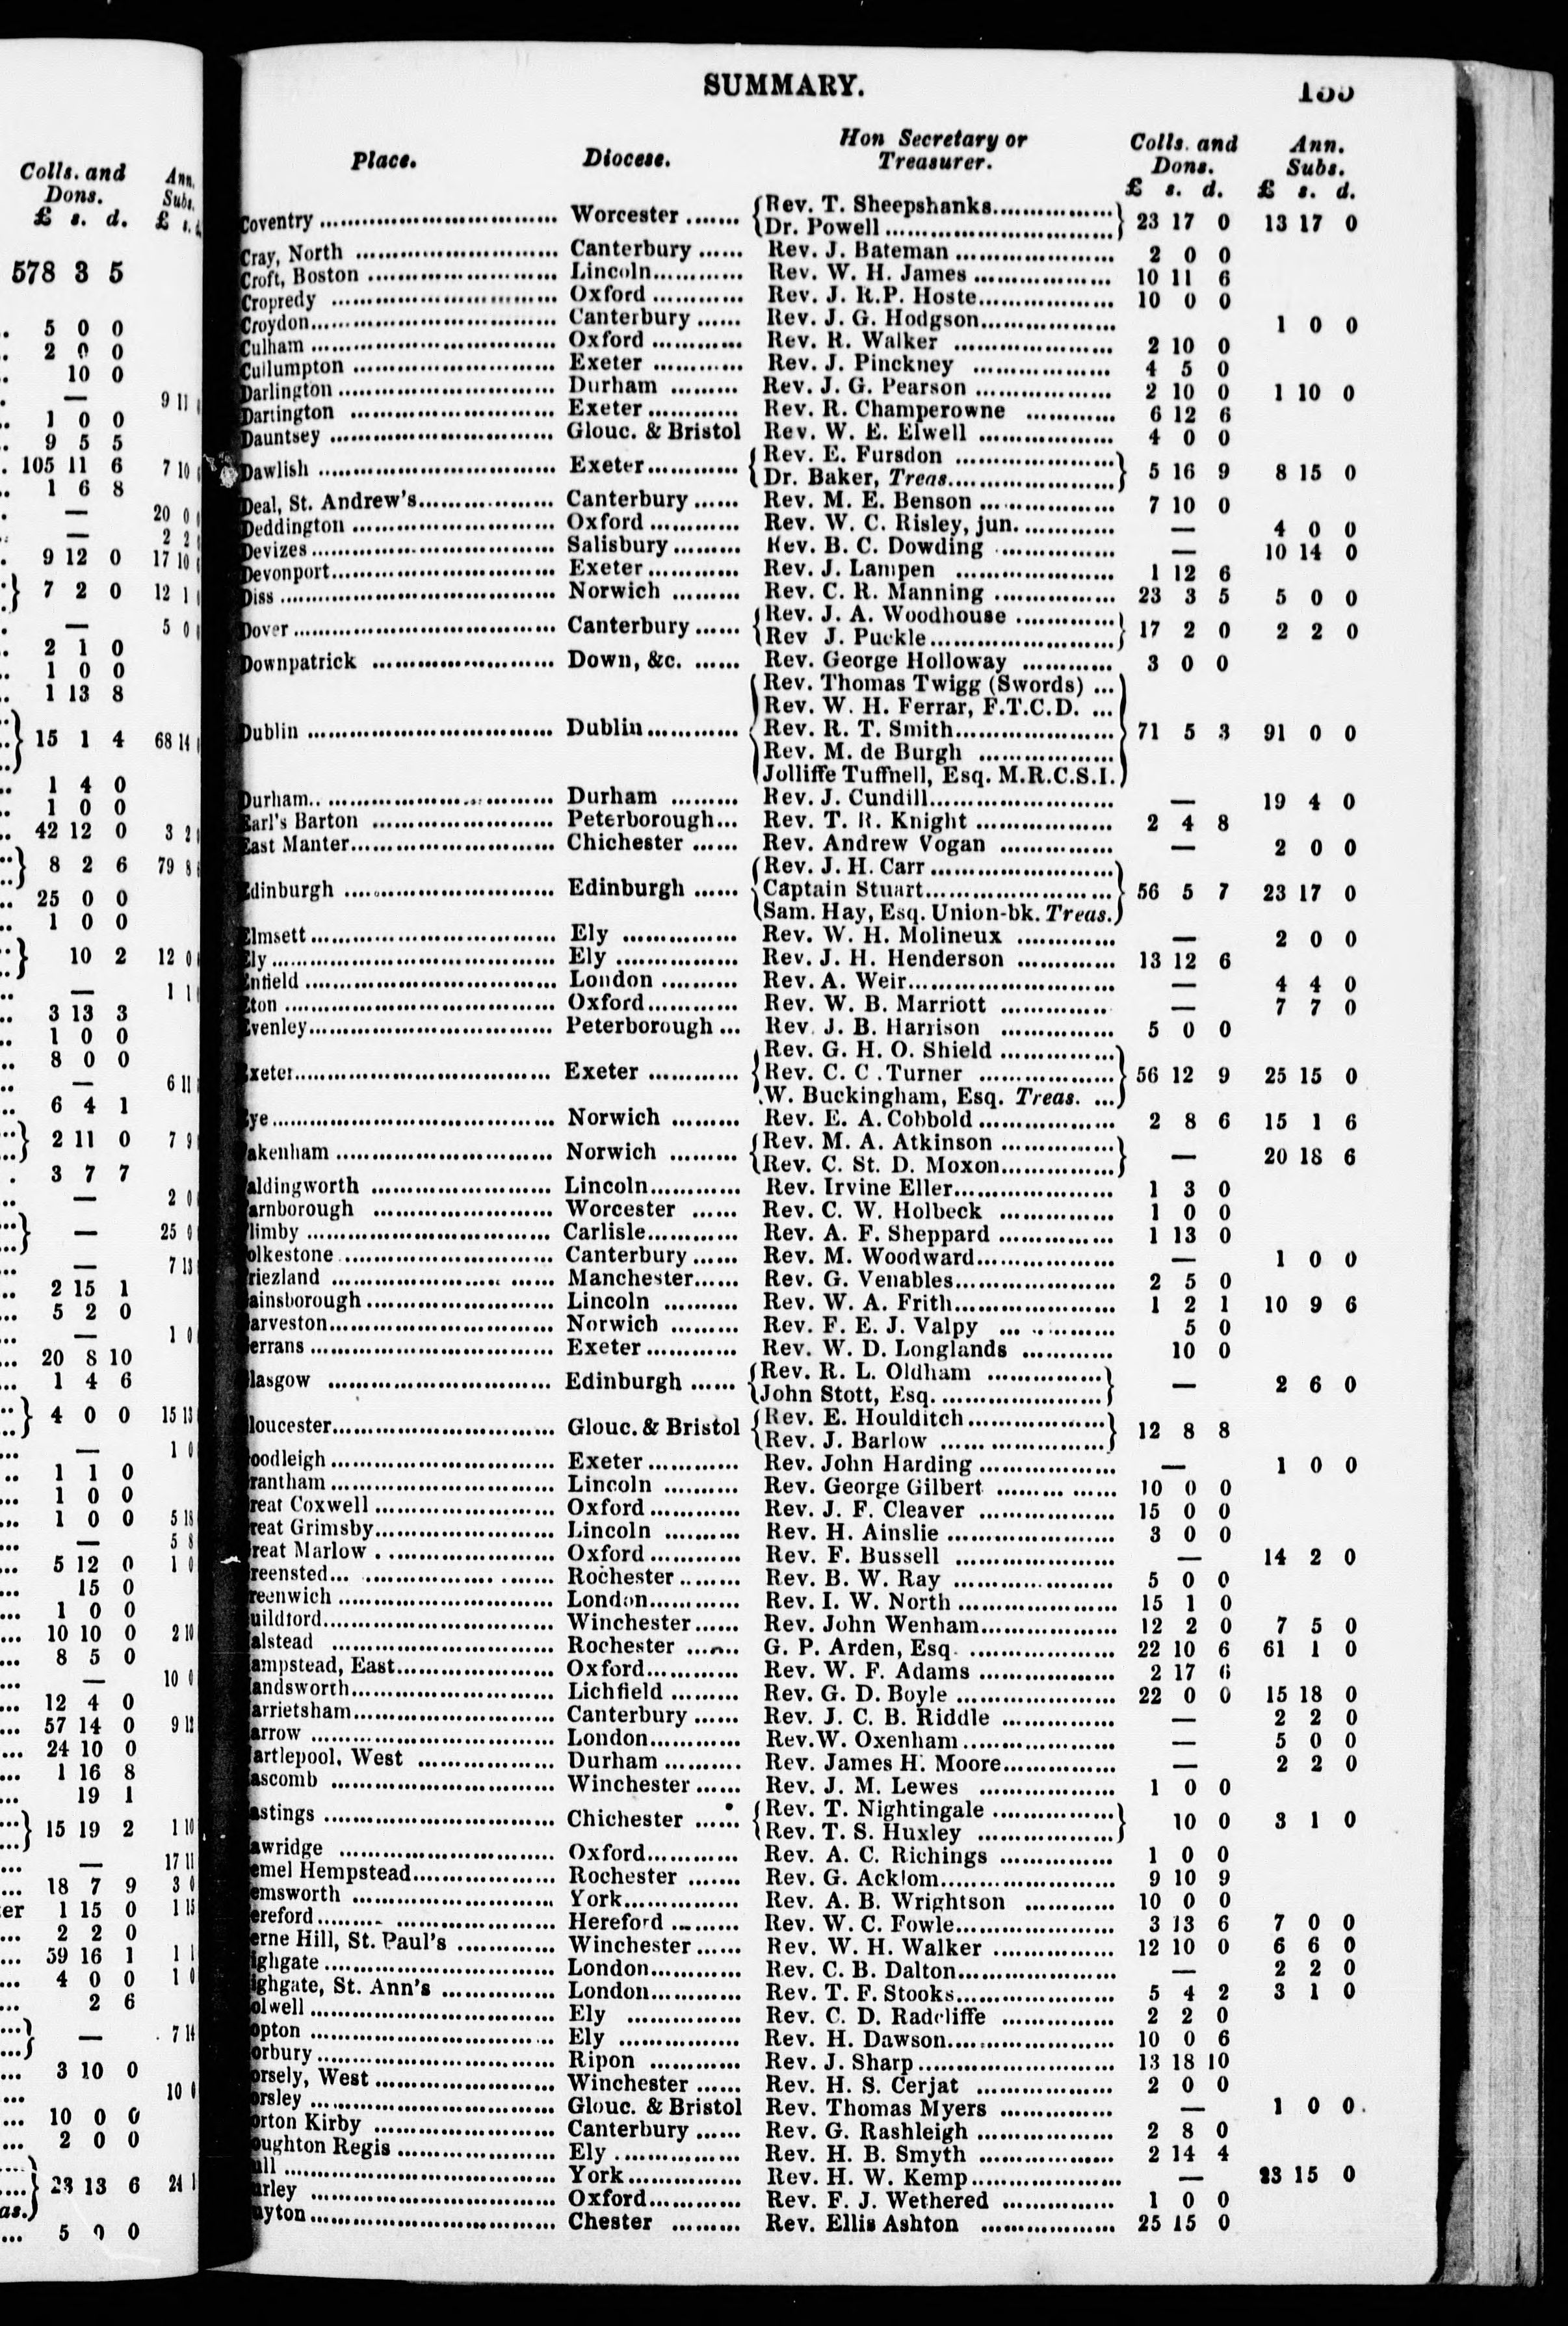 Colls. and Ann.
Dons. Subs.
£ s. d. £
578 3 5
5 0 0
2 0 0
10 0
— 9 11
1 0 0
9 5 5
105 11 6 7 10
1 6 8
— 20 0
— 2 2
9 12 0 17 10
7 2 0 12 1
— 5 0
2 1 0
1 0 0
1 13 8
15 1 4 68 14
1 4 0
1 0 0
42 12 0 3 2
8 2 6 79 8
25 0 0
1 0 0
10 2 12 0
— 1 1
3 13 3
1 0 0
8 0 0
— 6 11
6 4 1
2 11 0 7 9
3 7 7
— 2 0
— 25 0
— 7 13
2 15 1
5 2 0
— 1 0
20 8 10
1 4 6
4 0 0 15 13
— 1 0
1 1 0
1 0 0
1 0 0 5 18
— 5 8
5 12 0 1 0
15 0
1 0 0
10 10 0 2 10
8 5 0
— 10 0
12 4 0
57 14 0 9 12
24 10 0
1 16 8
19 1
15 19 2 1 10
— 17 11
18 7 9 3 0
er 1 15 0 1 15
2 2 0
59 16 1 1 1
4 0 0 1 0
2 6
— 7 14
3 10 0
10 0
10 0 0
2 0 0
23 13 6 24
as.)
5 0 0
SUMMARY.
Place. Diocese. Hon Secretary or Treasurer. Colls. and Dons. Ann. Subs.
£ s. d. £ s. d.
Coventry ........ Worcester ....... {Rev. T. Sheepshanks........
Dr. Powell ........} 23 17 0 13 17 0
Cray, North ........ Canterbury ...... Rev. J. Bateman ........ 2 0 0
Croft, Boston ........ Lincoln............ Rev. W. H. James ........ 10 11 6
Cropredy ........ Oxford ............ Rev. J. R.P. Hoste........ 10 0 0
Croydon........ Canterbury ...... Rev. J. G. Hodgson........ 1 0 0
Culham ........ Oxford ............ Rev. R. Walker ........ 2 10 0
Cullumpton ........ Exeter ............ Rev. J. Pinckney ........ 4 5 0
Darlington ........ Durham ......... Rev. J. G. Pearson ........ 2 10 0 1 10 0
Dartington ........ Exeter ............ Rev. R. Champerowne ........ 6 12 6
Dauntsey ........ Glouc. & Bristol Rev. W. E. Elwell ........ 4 0 0
Dawlish ........ Exeter............ {Rev. E. Fursdon ........
Dr. Baker, Treas.........} 5 16 9 8 15 0
Deal, St. Andrew's........ Canterbury ...... Rev. M. E. Benson ........ 7 10 0
Deddington ........ Oxford ............ Rev. W. C. Risley, jun. ........ — 4 0 0
Devizes ........ Salisbury ......... Rev. B. C. Dowding ........ — 10 14 0
Devonport........ Exeter ............ Rev. J. Lampen ........ 1 12 6
Diss ........ Norwich ......... Rev. C. R. Manning ........ 23 3 5 5 0 0
Dover ........ Canterbury ...... {Rev. J. A. Woodhouse ........
Rev J. Puckle........} 17 2 0 2 2 0
Downpatrick ........ Down, &c. ...... Rev. George Holloway ........ 3 0 0
{Rev. Thomas Twigg (Swords) ...
Rev. W. H. Ferrar, F.T.C.D. ...
Dublin ........ Dublin............ Rev. R. T. Smith........ 71 5 3 91 0 0
Rev. M. de Burgh ........
Jolliffe Tuffnell, Esq. M.R.C.S.I.}
Durham.. ........ Durham ......... Rev. J. Cundill........ — 19 4 0
Earl's Barton ........ Peterborough... Rev. T. R. Knight ........ 2 4 8
East Manter........ Chichester ...... Rev. Andrew Vogan ........ — 2 0 0
{Rev. J. H. Carr ........
Edinburgh ........ Edinburgh ...... Captain Stuart........ 56 5 7 23 17 0
Sam. Hay, Esq. Union-bk. Treas.}
Elmsett ........ Ely ............... Rev. W. H. Molineux ........ — 2 0 0
Ely ........ Ely ............... Rev. J. H. Henderson ........ 13 12 6
Enfield ........ London .......... Rev. A. Weir........ — 4 4 0
Eton ........ Oxford............ Rev. W. B. Marriott ........ — 7 7 0
Evenley........ Peterborough ... Rev. J. B. Harrison ........ 5 0 0
{Rev. G. H. O. Shield ........
Exeter........ Exeter ............ Rev. C. C .Turner ........ 56 12 9 25 15 0
W. Buckingham, Esq. Treas. ...}
Eye ........ Norwich ......... Rev. E. A. Cobbold ........ 2 8 6 15 1 6
akenham ........ Norwich ......... {Rev. M. A. Atkinson ........
Rev. C. St. D. Moxon........} — 20 18 6
aldingworth ........ Lincoln............ Rev. Irvine Eller........ 1 3 0
arnborough ........ Worcester ...... Rev. C. W. Holbeck ........ 1 0 0
limby ........ Carlisle............ Rev. A. F. Sheppard ........ 1 13 0
olkestone ........ Canterbury ...... Rev. M. Woodward........ — 1 0 0
riezland ........ Manchester...... Rev. G. Venables........ 2 5 0
ainsborough ........ Lincoln .......... Rev. W. A. Frith........ 1 2 1 10 9 6
arveston........ Norwich ......... Rev. F. E. J. Valpy ........ 5 0
errans ........ Exeter ............ Rev. W. D. Longlands ........ 10 0
lasgow ........ Edinburgh ...... {Rev. R. L. Oldham ........
John Stott, Esq. ........} — 2 6 0
loucester........ Glouc. & Bristol {Rev. E. Houlditch ........
Rev. J. Barlow ........} 12 8 8
oodleigh ........ Exeter ............ Rev. John Harding ........ — 1 0 0
rantham ........ Lincoln .......... Rev. George Gilbert ........ 10 0 0
reat Coxwell ........ Oxford ............ Rev. J. F. Cleaver ........ 15 0 0
reat Grimsby........ Lincoln .......... Rev. H. Ainslie ........ 3 0 0
reat Marlow ........ Oxford ............ Rev. F. Bussell ........ — 14 2 0
reensted... ........ Rochester ......... Rev. B. W. Ray ........ 5 0 0
reenwich ........ London............ Rev. I. W. North ........ 15 1 0
uildford........ Winchester...... Rev. John Wenham........ 12 2 0 7 5 0
alstead ........ Rochester ...... G. P. Arden, Esq. ........ 22 10 6 61 1 0
ampstead, East........ Oxford............ Rev. W. F. Adams ........ 2 17 6
andsworth........ Lichfield ......... Rev. G. D. Boyle ........ 22 0 0 15 18 0
arrietsham........ Canterbury ...... Rev. J. C. B. Riddle ........ — 2 2 0
arrow ........ London............ Rev.W. Oxenham ........ — 5 0 0
artlepool, West ........ Durham .......... Rev. James H. Moore........ — 2 2 0
ascomb ........ Winchester ...... Rev. J. M. Lewes ........ 1 0 0
astings ........ Chichester ...... {Rev. T. Nightingale ........
Rev. T. S. Huxley ........} 10 0 3 1 0
awridge ........ Oxford............ Rev. A. C. Richings ........ 1 0 0
emel Hempstead........ Rochester ....... Rev. G. Acklom........ 9 10 9
emsworth ........ York............... Rev. A. B. Wrightson ........ 10 0 0
ereford ........ Hereford ......... Rev. W. C. Fowle........ 3 13 6 7 0 0
erne Hill, St. Paul's ........ Winchester ...... Rev. W. H. Walker ........ 12 10 0 6 6 0
ighgate ........ London............ Rev. C. B. Dalton........ — 2 2 0
ighgate, St. Ann's ........ London............ Rev. T. F. Stooks........ 5 4 2 3 1 0
olwell ........ Ely ............... Rev. C. D. Radcliffe ........ 2 2 0
opton ........ Ely ............... Rev. H. Dawson........ 10 0 6
orbury ........ Ripon ............ Rev. J. Sharp ........ 13 18 10
orsely, West ........ Winchester ...... Rev. H. S. Cerjat ........ 2 0 0
orsley ........ Glouc. & Bristol Rev. Thomas Myers ........ — 1 0 0
orton Kirby ........ Canterbury ...... Rev. G. Rashleigh ........ 2 8 0
oughton Regis ........ Ely ............... Rev. H. B. Smyth ........ 2 14 4
ull ........ York............... Rev. H. W. Kemp........ — 23 15 0
urley ........ Oxford............ Rev. F. J. Wethered ........ 1 0 0
uyton ........ Chester ......... Rev. Ellis Ashton ........ 25 15 0